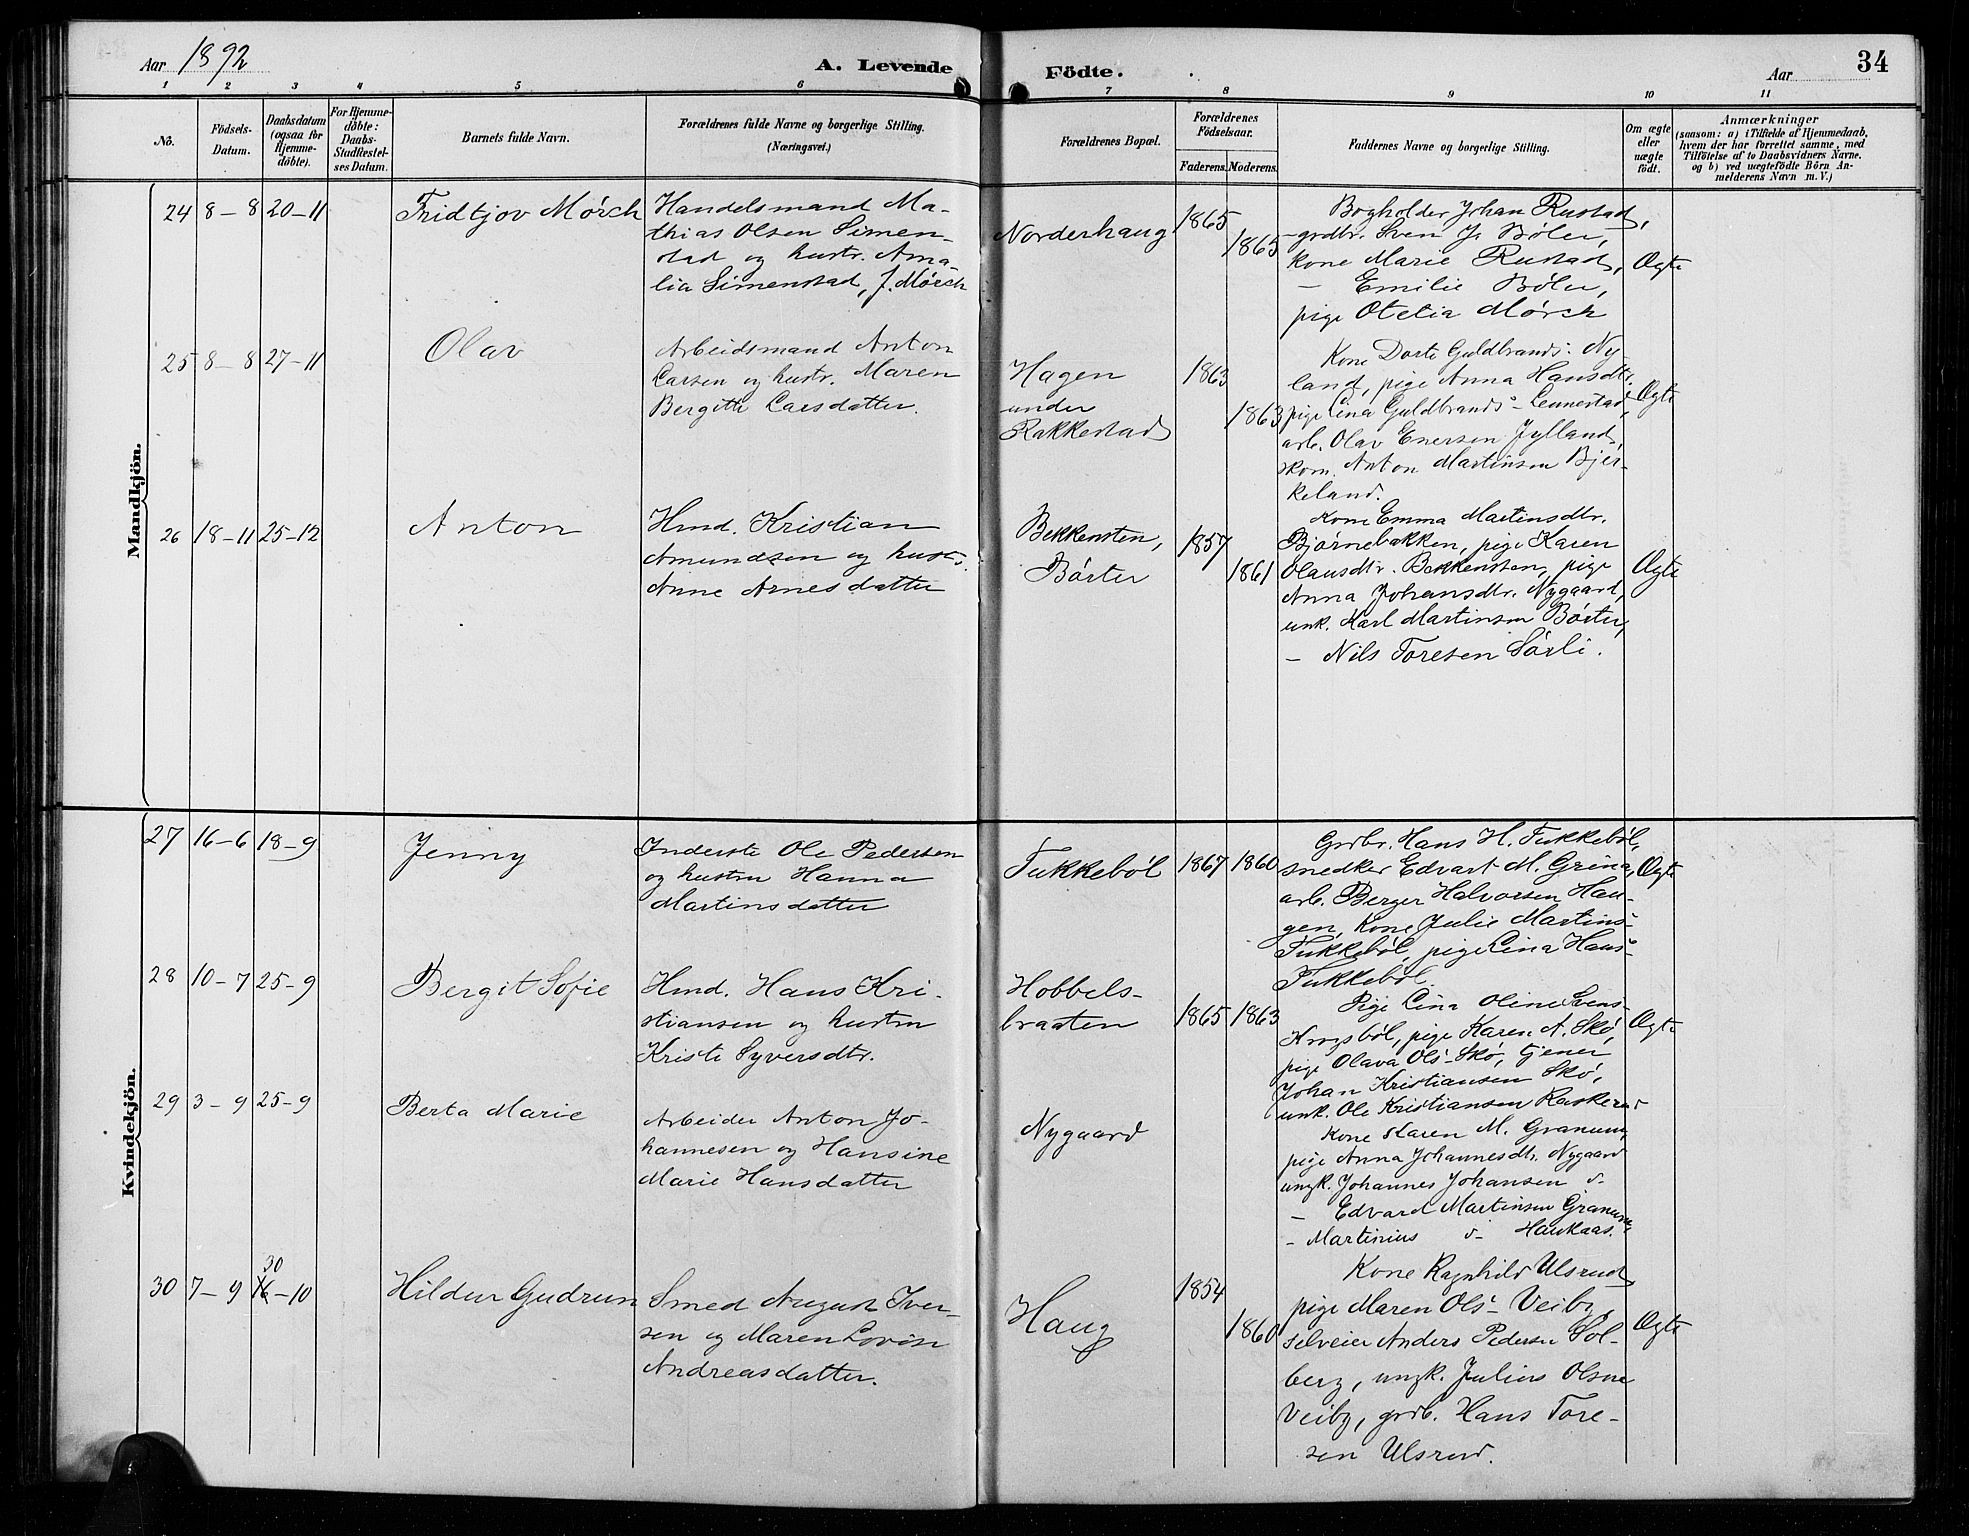 Aar 1892
A. Levende Födte.
Aar
34
1 2 3 4 5 6 7 8 9 10 11
No.
Födsels-
Datum.
Daabsdatum
(ogsaa for
Hjemme-
döbte).
For Hjemme-
döbte:
Daabs-
Stadfæstel-
ses Datum.
Barnets fulde Navn.
Forældrenes fulde Navne og borgerlige Stilling.
(Næringsvei.)
Forældrenes Bopæl.
Forældrenes
Födselsaar.
Faderens. Moderens.
Faddernes Navne og borgerlige Stilling.
Om ægte
eller
uægte
födt.
Anmærkninger
(saasom: a) i Tilfælde af Hjemmedaab,
hvem der har forrettet samme, med
Tilföielse af to Daabsvidners Navne.
og b) ved uægtefödte Börn An-
melderens Navn m. V.)
Mandkjön.
24 8-8 20-11
Fridtjov Mörch
Handelsmand Ma-
thias Olsen Simen-
stad og hustr. Ama-
lia Simenstad, f. Mörch
Norderhaug
1865
1865
Bogholder Johan Rustad,
grdbr. Sven J. Böler,
kone Marie Rustad,
— Emilie Böler,
pige Otelia Mörch
Ægte
25 8-8 27-11
Olav
Arbeidsmand Anton
Larsen og hustr. Maren
Bergitte Larsdatter.
Hagen
under
Rakkestad
1863
1863
Kone Dorte Guldbrands. Ny-
land, pige Anna Hansdtr.
pige Lina Guldbrands- Lennestad,
arb. Olav Enersen Jylland,
skom. Anton Martinsen Bjer-
keland.
Ægte
26 18-11 25-12
Anton
Hmd. Kristian
Amundsen og hustr.
Anne Arnesdatter
Bekkensten,
Börter
1857
1861
Kone Emma Martinsdtr.
Björnebakken, pige Karen
Olausdtr. Bekkensten, pige
Anna Johansdtr. Nygaard,
unk. Karl Martinsen Börter,
— Nils Toresen Sörli.
Ægte
Kvindekjön.
27 16-6 18-9
Jenny
Inderste Ole Pedersen
og hustru Hanna
Martinsdatter
Tukkeböl
1867 1860
Grdbr. Hans H. Tukkeböl,
snedker Edvart M. Grina,
arb. Berger Halvorsen Hau-
gen, Kone Julie Martins-
Tukkeböl, pige Lina Hans-
Tukkeböl.
Ægte
28 10-7 25-9
Bergit Sofie
Hmd. Hans Kri-
stiansen og hustru
Kristi Syversdtr.
Hobbels-
braaten
1865 1863
Pige Lina Oline Svens-
Krogsböl, pige Karen A. Skö,
pige Olava Ols- Skö, tjener
Johan Kristiansen Skö,
unk. Ole Kristiansen Raskerud
Ægte
29 3-9 25-9
Berta Marie
Arbeider Anton Jo-
hannesen og Hansine
Marie Hansdatter
Nygaard
Kone Karen M. Granum,
pige Anna Johannesdtr. Nygaard
ungk. Johannes Johansen d-
— Edvard Martinsen Granum,
- Martinius d- Haukaas.
30 7-9 30-10
Hildur Gudrun
Smed August Iver-
sen og Maren Lovise
Andreasdatter.
Haug
1854
1860
Kone Ragnhild Ulsrud
pige Maren Ols- Veiby,
selveier Anders Pedersen Sol-
berg, ungk. Julius Olsen
Veiby, grdb. Hans Tore-
sen Ulsrud.
Ægte